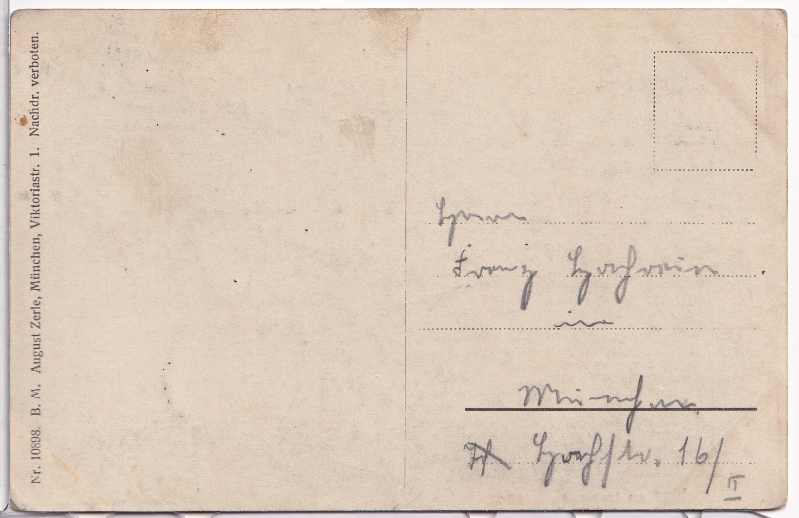 Nr. 10898. B. M. August Zerle, München, Viktoriastr. 1. Nachdr. verboten.
Herrn
Franz Hochrein
in
München
Hochstr. 16/
II